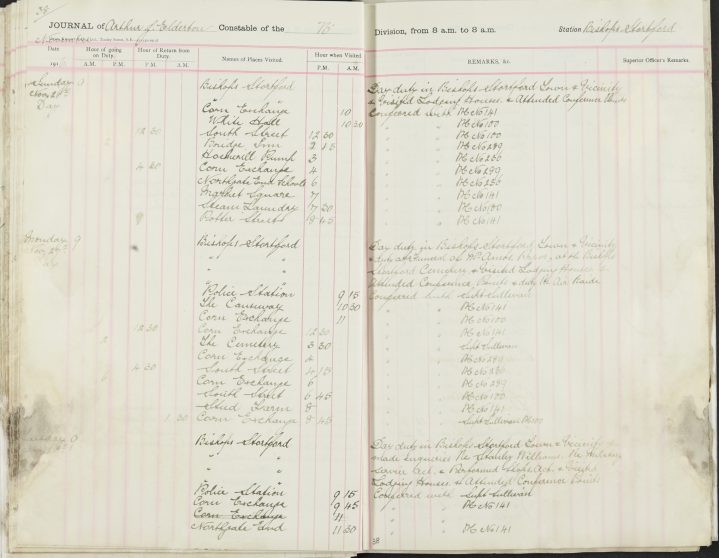 38
JOURNAL of Arthur J. Elderton Constable of the "B" Division, from 8 a.m. to 8 a.m. Station Bishops Stortford
Date Hour of going on Duty. Hour of Return from Duty. Names of Places Visited. Hour when Visited REMARKS, &c. Superior Officer's Remarks.
191 A.M. P.M. A.M. P.M. P.M. A.M.
Sunday 9 Bishops Stortford Day duty in Bishops Stortford Town & Vicinity
Day & Visited Lodging Houses. & Attended Conference Points
Corn Exchange 10 Conferred with PC No 141
White Hall 10 30 " " PC No 100
12 30 South Street 12 30 " " PC No 100
2 Bridge Inn 2 45 " " PC No 289
Hockerill Pump 3 " " PC No 236
4 30 Corn Exchange 4 " " PC No 289
6 Northgate End Schools 6 " " PC No 236
Market Square 7 " " PC No 141
Steam Laundry 7 30 " " PC No 100
9 Potter Street 8 45 " " PC No 141
Monday 9 Bishops Stortford Day duty in Bishops Stortford Town & Vicinity
" " & duty at Funeral of at the Bishops
" " Stortford Cemetery & Visited Lodging Houses &
" " Attended Conference Points & duty re Air Raids
Police Station 9 15 Conferred with Supt Sullivan
The Causeway 10 30 " " PC No 141
Corn Exchange 11 " " PC No 100
12 30 Corn Exchange 12 30 " " PC No 141
2 The Cemetery 3 30 " " Supt Sullivan
Corn Exchange 4 " " PC No 289
4 30 South Street 4 15 " " PC No 236
6 Corn Exchange 6 " " PC No 289
South Street 6 45 " " PC No 100
Stud Farm 8 " " PC No 141
1 30 Corn Exchange 8 45 " " Supt Sullivan PC 100
Bishops Stortford Day duty in Bishops Stortford Town & Vicinity &
" " made Inquiries Re Stanley Williams, Re Military
" " Service Act. & Performed Shops Act. & Visited
" " Lodging Houses & Attended Conference Points
Police Station 9 15 Conferred with Supt Sullivan
Corn Exchange 9 45 " " PC No 141
Corn Exchange 11
Northgate End 11 30 " " PC No 141
38